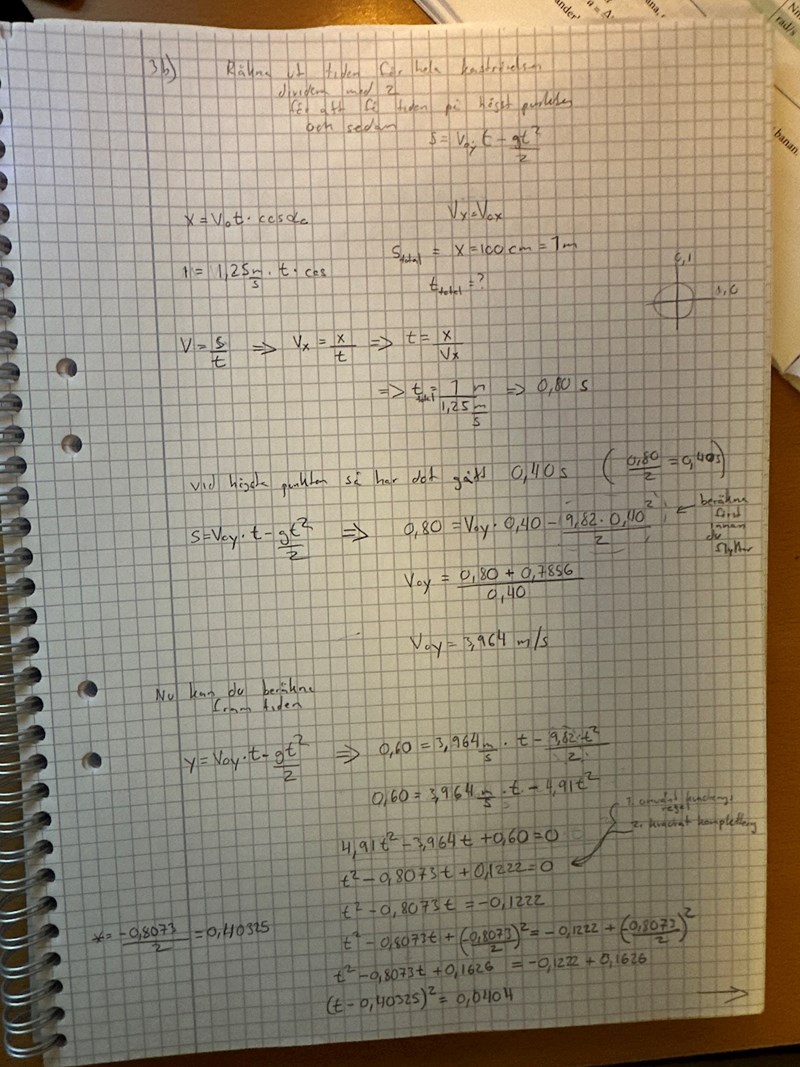 3b) Räkna ut tiden för hela kaströrelsen
dividera med 2
för att få tiden på högst punkten
och sedan
s = V₀y t - gt²/2
X = V₀t · cosα₀
Vx = V₀x
1 = 1,25 m/s · t · cos
S total = X = 100 cm = 1 m
t total = ?
0,1
1,0
V = s/t => Vx = x/t => t = x/Vx
=> t total = 1 m / 1,25 m/s => 0,80 s
vid högsta punkten så har det gått 0,40 s (0,80/2 = 0,40s)
S = V₀y · t - gt²/2 => 0,80 = V₀y · 0,40 - 9,82 · 0,40²/2
beräkna
först
innan
du
flyttar
V₀y = 0,80 + 0,7856 / 0,40
V₀y = 3,964 m/s
Nu kan du beräkna
fram tiden
y = V₀y · t - gt²/2 => 0,60 = 3,964 m/s · t - 9,82 · t²/2
0,60 = 3,964 m/s · t - 4,91t²
1. använd
regel
2. kvadrat komplettering
4,91t² - 3,964t + 0,60 = 0
t² - 0,8073t + 0,1222 = 0
t² - 0,8073t = -0,1222
* = -0,8073/2 = 0,40325
t² - 0,8073t + (-0,8073/2)² = -0,1222 + (-0,8073/2)²
t² - 0,8073t + 0,1626 = -0,1222 + 0,1626
(t - 0,40325)² = 0,0404
rad/s
banan.